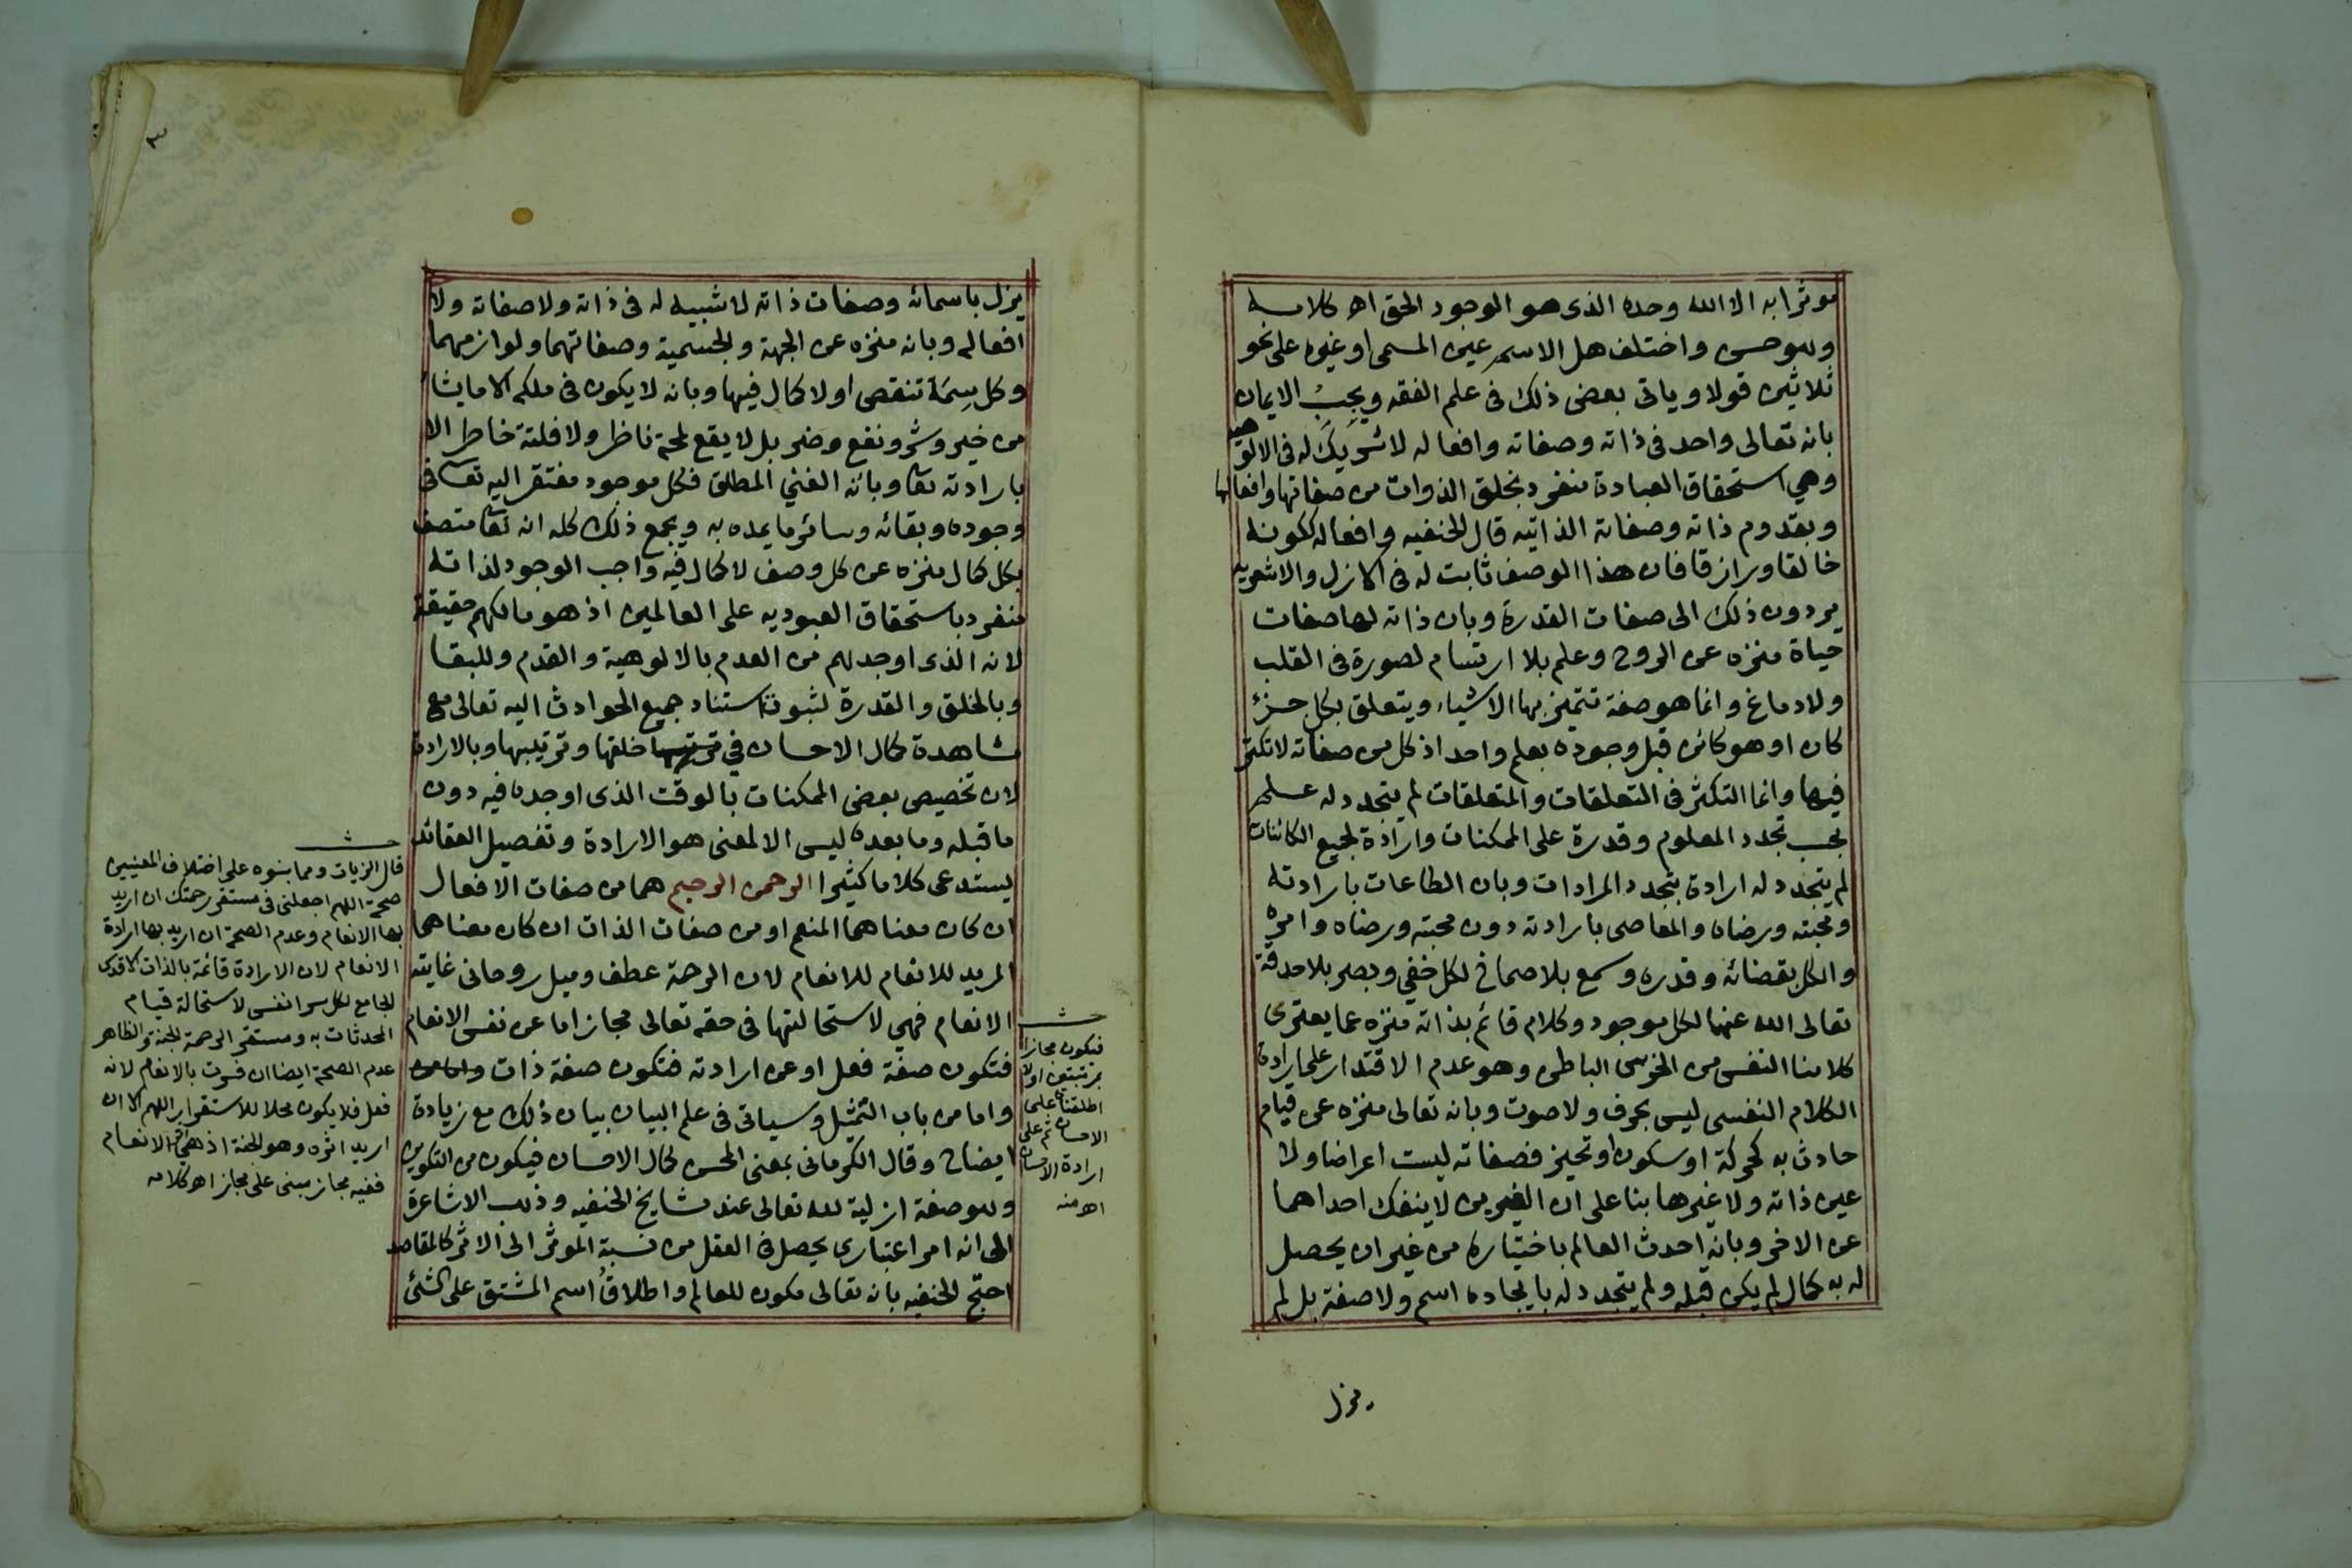 موثرا به الا الله وحده الذى هو الوجود الحق اهـ كلامه
وهو حسن واختلف هل الاسم عين المسمى او غيره على نحو
ثلاثين قولا وياتى بعض ذلك فى علم الفقه ويجب الايمان
بانه تعالى واحد فى ذاته وصفاته وافعاله لا شريك له فى الالوهيه
وهي استحقاق العبادة منفرد بخلق الذوات من صفاتها وافعالها
وبقدوم ذاته وصفاته الذاتيه قال الحنفيه وافعاله ككونه
خالقا ورازقا فان هذا الوصف ثابت له فى الازل والاشعريه
يردون ذلك الى صفات القدرة وبان ذاته لها صفات
حياة منزه عن الروح وعلم بلا ارتسام لصورة فى القلب
ولا دماغ وانما هو صفة تتميز بها الاشياء ويتعلق بكل جزئ
كان او هو كائن قبل وجوده بعلم واحد اذ كل من صفاته لا تكثر
فيها وانما التكثر فى التعلقات والمتعلقات لم يتجدد له علم
بحسب تجدد المعلوم وقدرة على الممكنات وارادة لجميع الكائنات
لم يتجدد له ارادة بتجدد المرادات وبان الطاعات بارادته
ومحبته ورضاه والمعاصى بارادته دون محبته ورضاه وامره
والكل بقضائه وقدره وسمع بلا صماخ لكل خفي وبصر بلا حدقة
تعالى الله عنها لكل موجود وكلام قائم بذاته منزه عما يعترى
كلامنا النفسى من الخرس الباطن وهو عدم الاقتدار على ارادة
الكلام النفسى ليس بحرف ولا صوت وبانه تعالى منزه عن قيام
حادث به كحركة او سكون او تحيز فصفاته ليست اعراضا ولا
عين ذاته ولا غيرها بنا على ان الغيرين لا ينفك احداهما
عن الاخر وبانه احدث العالم باختياره من غير ان يحصل
له به كمال لم يكن قبله ولم يتجدد له بايجاده اسم ولا صفة بل لم
يزل
٣
يزل باسمائه وصفات ذاته لا شبيه له فى ذاته ولا صفاته ولا
افعاله وبانه منزه عن الجهة والجسمية وصفاتهما ولوازمهما
وكل سِمَة تنقص او لا كمال فيها وبانه لا يكون فى ملكه الا ما يشا
من خير وشر ونفع وضر بل لا يقع لمحة ناظر ولا فلتة خاطر الا
بارادته تعا وبانه الغني المطلق فكل موجود مفتقر اليه تعا فى
وجوده وبقائه وسائر ما يمده به ويجمع ذلك كله انه تعا متصف
بكل كمال منزه عن كل وصف لا كمال فيه واجب الوجود لذاته
منفرد باستحقاق العبوديه على العالمين اذ هو مالكهم حقيقة
لانه الذى اوجدهم من العدم بالالوهية والقدم وللبقا
وبالخلق والقدرة لثبوت استناد جميع الحوادث اليه تعالى مع
مشاهدة كمال الاحسان في خلقها وترتيبها وبالارادة
لان تخصيص بعض الممكنات بالوقت الذى اوجده فيه دون
ما قبله وما بعده ليس الا لمعنى هو الارادة وتفصيل العقائد
يستدعى كلاما كثيرا الرحمن الرحيم هما من صفات الافعال
ان كان معناهما المنعم او من صفات الذات ان كان معناهما
المريد للانعام للانعام لان الرحمة عطف وميل روحانى غايته
الانعام فهي لاستحالتها فى حقه تعالى مجاز اما عن نفس الانعام
فتكون صفة فعل او عن ارادته فتكون صفة ذات
واما من باب التمثيل وسياتى فى علم البيان بيان ذلك مع زيادة
ايضاح وقال الكرمانى بمعنى المحسن لكمال الاحسان فيكون من التكوين
وهو صفة ازلية لله تعالى عند مشايخ الحنفيه وذهب الاشاعرة
الى انه امر اعتبارى يحصل فى العقل من نسبة الموثر الى الاثر كالمقاصد
احتج الحنفيه بانه تعالى مكون للعالم واطلاق اسم المشتق على الشئ
فيكون مجازا
بمرتبتين اولا
اطلقناه على
الاحسان ثم على
ارادة الاحسان
اهـ منه
قال الزيات ومما بنوه على اختلاف المعنيين
صحة اللهم اجعلنى فى مستقر رحمتك ان اريد
بها الانعام وعدم الصحة ان اريد بها ارادة
الانعام لان الارادة قائمة بالذات الاقدس
الجامع لكل سر انفس لاستحالة قيام
المحدثات به ومستقر الرحمة الجنة والظاهر
عدم الصحة ايضا ان فسرت بالانعام لانه
فعل فلا يكون محلا للاستقرار اللهم الا ان
اريد اثره وهو الجنة اذ هي الانعام
ففيه مجاز مبنى على مجاز اهـ كلامه